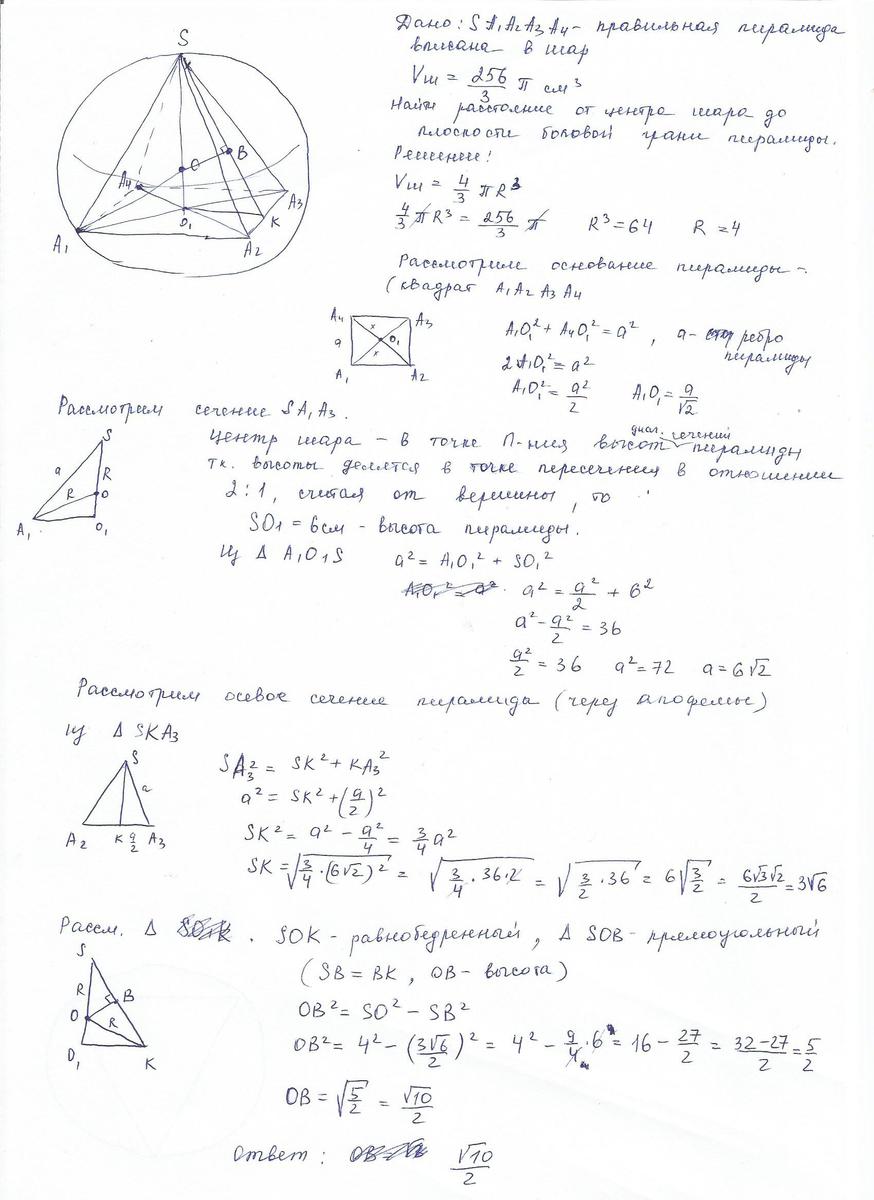 Дано: SA₁A₂A₃A₄ - правильная пирамида
вписана в шар
Vш = 256/3 π см³
Найти расстояние от центра шара до
плоскости боковой грани пирамиды.
Решение:
Vш = 4/3 πR³
4/3 πR³ = 256/3 π R³ = 64 R = 4
S
O
B
A₄
A₃
O₁
K
A₁
A₂
Рассмотрим основание пирамиды -
(квадрат A₁A₂A₃A₄
A₄ A₃
a x O₁
x
A₁ A₂
A₁O₁² + A₄O₁² = a² , a - ребро
пирамиды
2A₁O₁² = a²
A₁O₁² = a²/2 A₁O₁ = a/√2
Рассмотрим сечение SA₁A₃.
S
a R
R O
A₁ O₁
Центр шара - в точке П-ния высот диаг. сечений пирамиды
т.к. высоты делятся в точке пересечения в отношении
2:1, считая от вершины, то
SO₁ = 6см - высота пирамиды.
Из Δ A₁O₁S a² = A₁O₁² + SO₁²
a² = a²/2 + 6²
a² - a²/2 = 36
a²/2 = 36 a² = 72 a = 6√2
Рассмотрим осевое сечение пирамида (через апофемы)
Из Δ SKA₃
S
a
A₂ K a/2 A₃
SA₃² = SK² + KA₃²
a² = SK² + (a/2)²
SK² = a² - a²/4 = 3/4 a²
SK = √(3/4 · (6√2)²) = √(3/4 · 36·2) = √(3/2 · 36) = 6√(3/2) = 6√3√2/2 = 3√6
Рассм. Δ . SOK - равнобедренный, Δ SOB - прямоугольный
S
R
B
O
R
O₁ K
(SB = BK, OB - высота)
OB² = SO² - SB²
OB² = 4² - (3√6/2)² = 4² - 9/4 · 6 = 16 - 27/2 = 32-27/2 = 5/2
OB = √(5/2) = √10/2
Ответ: √10/2